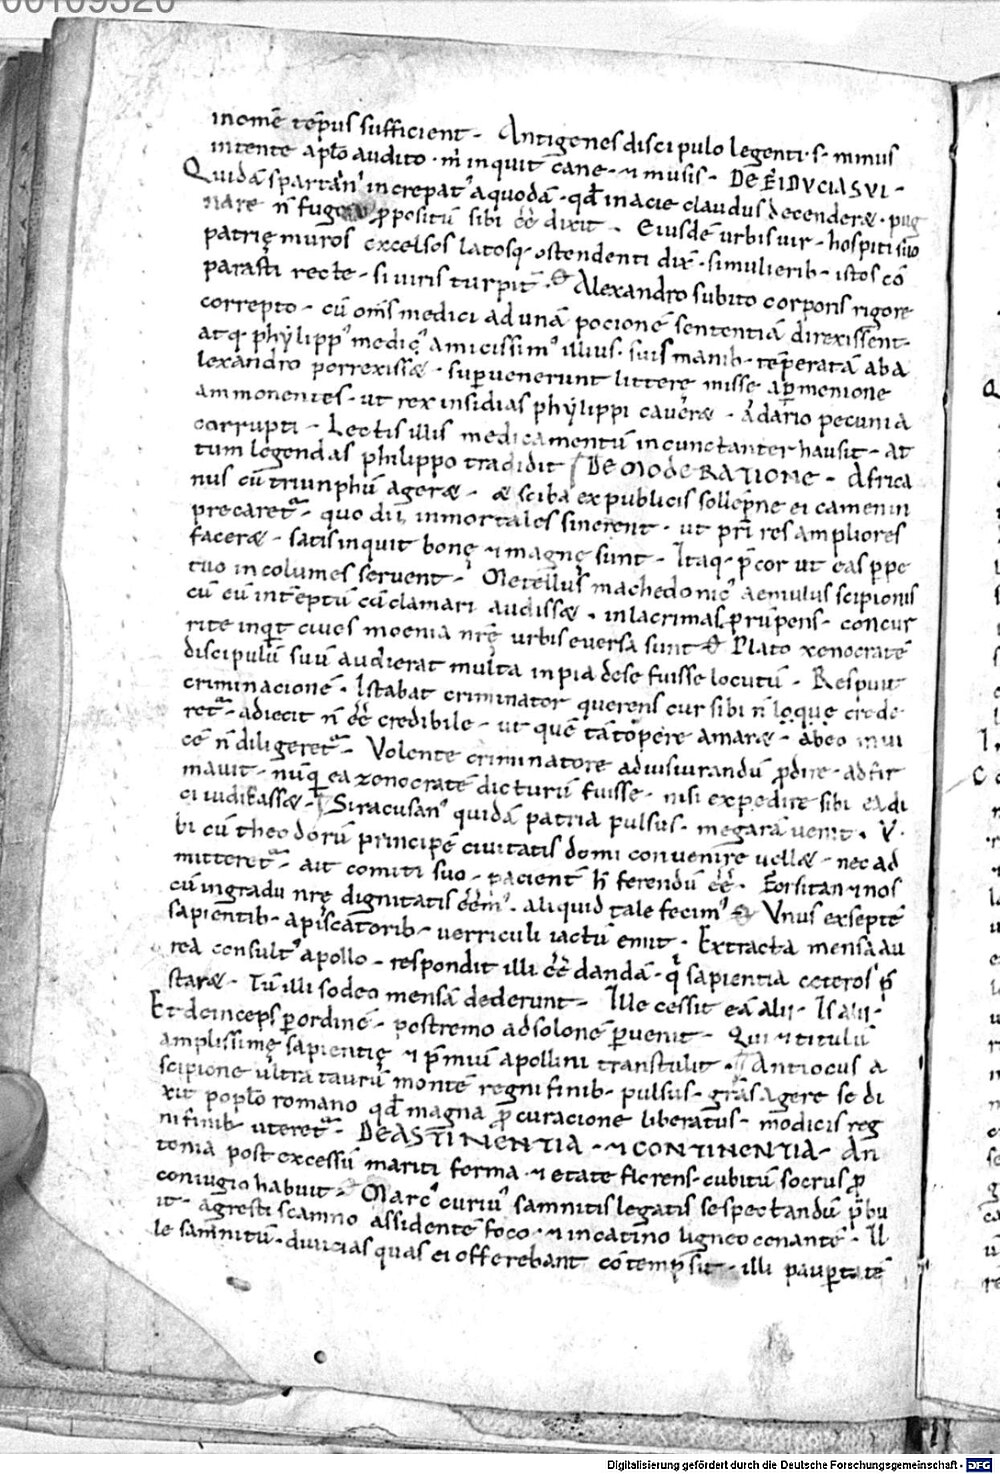 00109320
in omē tēpus sufficient - Antigenes discipulo legenti · s · minus
intente aplō audito · m̄ inquit cane · & musis - DE FIDVCIA SVI -
Quidā spartan' increpat' a quodā · qđ in acie claudus decenderæ · pug
nare n̄ fugere ꝓpositū sibi eē dixit - Eiusdē urbis uir - hospiti suo
patrię muros excelsos latosq · ostendenti dix̄ · si mulierib · istos cō
parasti recte - si uiris turpit̄ · Alexandro subito corporis rigore
correpto - cū om̄s medici ad unā pocionē sententiā direxissent ·
atq · phylipp' medic' amicissim' illius · suis manib · tēperatā aba
lexandro porrexissæ - supuenerunt litterę missę a parmenione
ammonentes - ut rex insidias phylippi cauēræ - a dario pecunia
corrupti - Lectis illis medicamentū incunctanter hausit - at
tum legendas philippo tradidit DE MODERATIONE - Africa
nus cū triunphū ageræ - æ scība ex publicis sollēpne ei camen in
precaret - quo dii inmortales sinerent - ut pri res ampliores
faceræ - satis inquit bonę & magnę sunt - Itaq · p̄cor ut eas ppe
tuo incolumes seruent - Metellus machedonic' aemulus scipionis
cū eū int̄eptū cclamari audissæ · in lacrimas prūpens - concur
rite inq̄t ciues moenia nrē urbis euersa sunt Plato xenocratē
discipulū suū audierat multa inpia de se fuisse locutū - Respuit
criminacionē · Istabat criminator querens cur sibi n̄ loque crede
ret - adiecit n̄ eē credibile - ut quē tātopere amaræ - ab eo inui
cē n̄ diligeret - Volente criminatore ad iusiurandū ꝓdire - adfir
mauit - nūq ea xonocratē dicturū fuisse - nisi expedire sibi ea di
ci iudicassæ - Siracusan' quidā patria pulsus - megarā uenit · V ·
bi cū theodorū principē ciuitatis domi conuenire uellæ - nec ad
mitteret - ait comiti suo - pacient h̄ ferendū eē · Forsitan & nos
cū in gradu nrē dignitatis eēm' · aliquid tale fecim' Vnus ex septē
sapientib - a piscatorib - uerriculi iactū emit · Extracta mensa au
rea consult' apollo - respondit illi eē dandā - q̄ sapientia ceteros p̄
staræ - Tū illi sodeo mensā dederunt - Ille cessit eā alii - Is alii -
Et deinceps p ordinē - postremo ad solonē puenit - Qui & titulū
amplissimę sapientię & p̄miū apollini transtulit · Antiocus a
scipione ultra taurū montē regni finib · pulsus - grās agere se di
xit poplō romano qđ magna ꝓcuracione liberatus - modicis reg
ni finib · uteret - DE ASTINENTIA - & CONTINENTIA - An
tonia post excessū mariti forma · & etate florens - cubitū socrus ꝓ
coniugio habuit - Marc' curiu' samnitis legatis se spectandū p̄bu
it - agresti scamno assidentē foco · & in catino ligneo cenantē - Il
le samnitū · diuicias quas ei offerebant cōtempsit - illi paupertatē
Digitalisierung gefördert durch die Deutsche Forschungsgemeinschaft - DFG